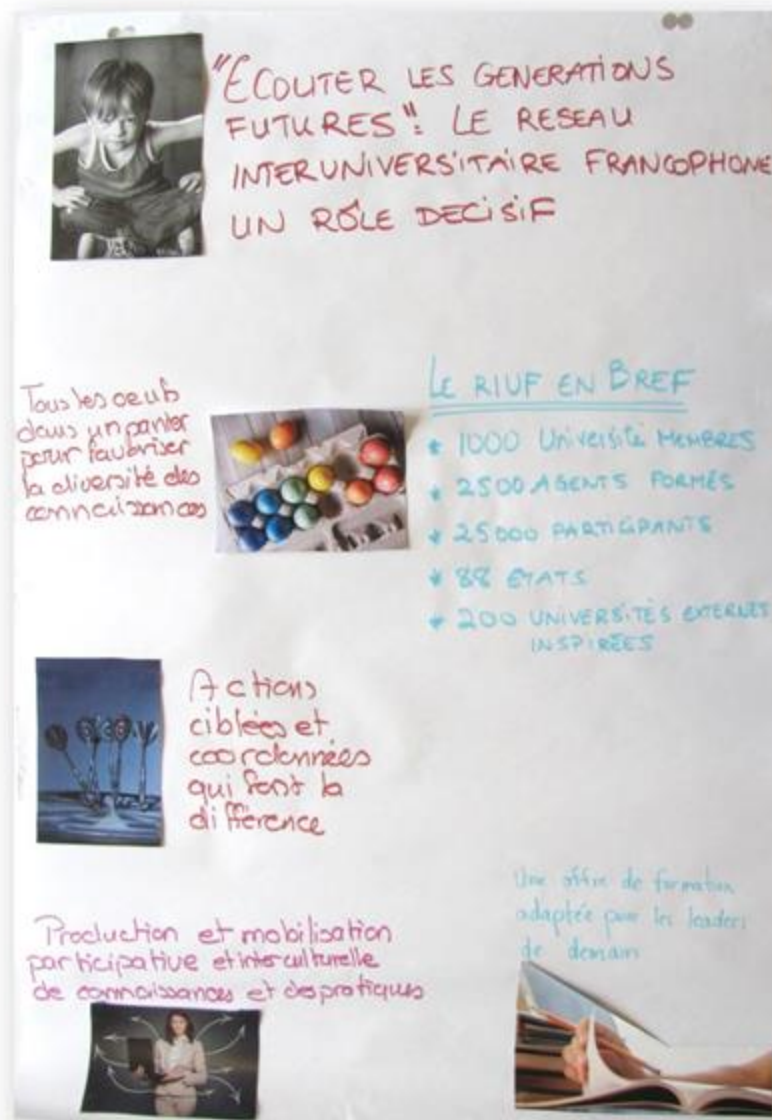 "ECOUTER LES GENERATIONS
FUTURES": LE RESEAU
INTERUNIVERSITAIRE FRANCOPHONE
UN RÔLE DECISIF
Tous les oeufs
dans un panier
pour favoriser
la diversité des
connaissances
LE RIUF EN BREF
* 1000 Université MEMBRES
* 2500 AGENTS FORMÉS
* 25000 PARTICIPANTS
* 88 ETATS
* 200 UNIVERSITÉS EXTERNES
INSPIRÉES
Actions
ciblées et
coordonnées
qui font la
différence
Une offre de formation
adaptée pour les leaders
de demain
Production et mobilisation
participative et interculturelle
de connaissances et des pratiques